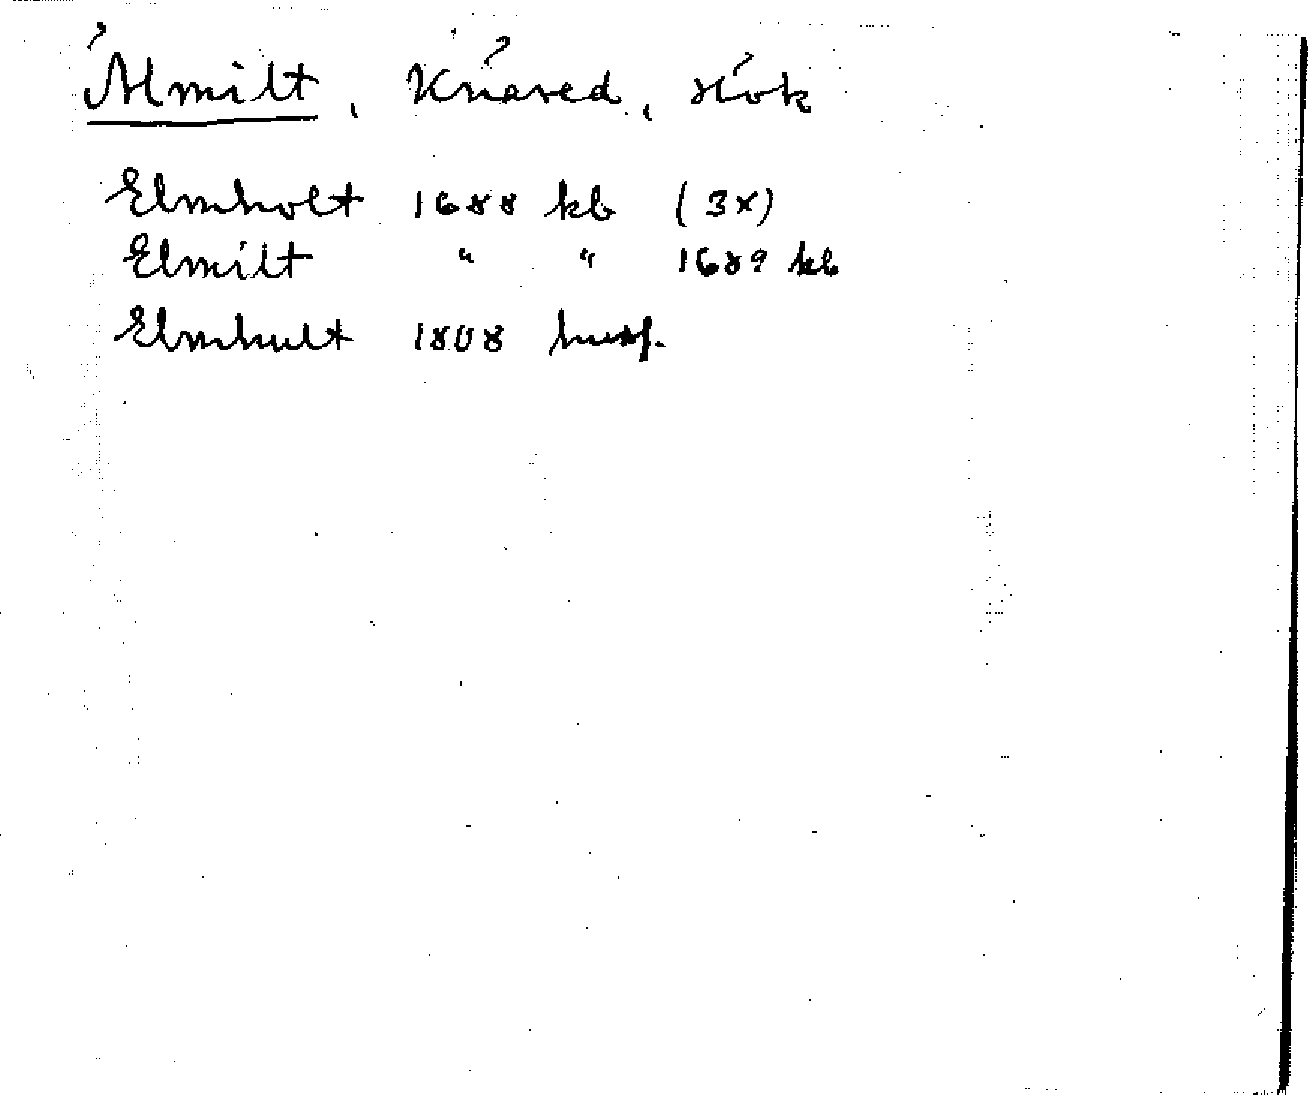 Älmilt, Knäred, Hök
Elmholt 1688 kb (3x)
Elmilt " " 1689 kb
Elmhult 1808 husf.